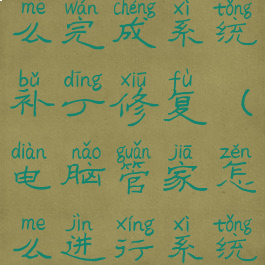 me wán chéng xì tǒng
么完成系统
bǔ dīng xiū fù
补丁修复（
diàn nǎo guǎn jiā zěn
电脑管家怎
me jìn xíng xì tǒng
么进行系统